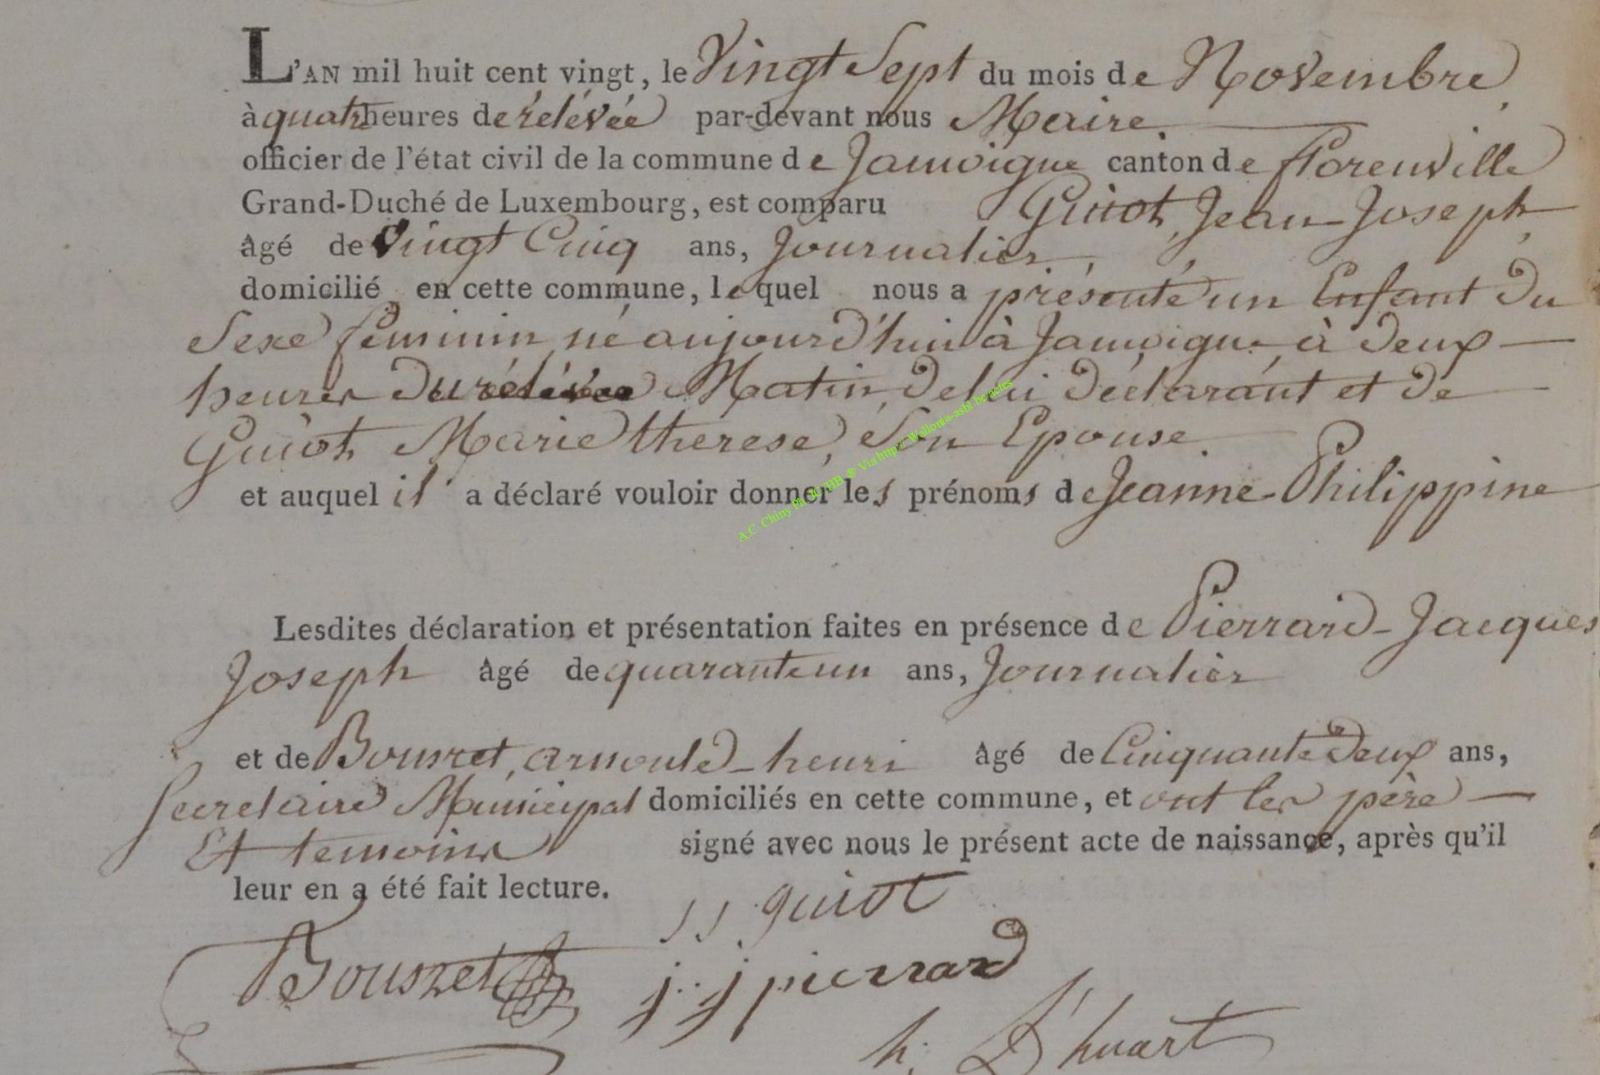 L'AN mil huit cent vingt, le Vingt Sept du mois de Novembre
à quatre heures de rélévée par-devant nous Maire
officier de l'état civil de la commune de Jamoigne canton de florenville
Grand-Duché de Luxembourg, est comparu Guiot, Jean-Joseph
âgé de Vingt Cinq ans, Journalier,
domicilié en cette commune, lequel nous a présenté un Enfant du
Sexe féminin né aujourd'hui à Jamoigne à deux
heures du rélévée Matin, de lui déclarant et de
Guiot Marie therese, Son Epouse
et auquel il a déclaré vouloir donner les prénoms de Jeanne-Philippine
Lesdites déclaration et présentation faites en présence de Pierrard-Jacques
Joseph âgé de quarante un ans, Journalier
et de Bousret, arnould-henri âgé de Cinquante deux ans,
Secretaire Municipal domiciliés en cette commune, et ont les père
Et temoins signé avec nous le présent acte de naissance, après qu'il
leur en a été fait lecture.
JJ guiot
Bousret j.j pierrard
h. D'huart